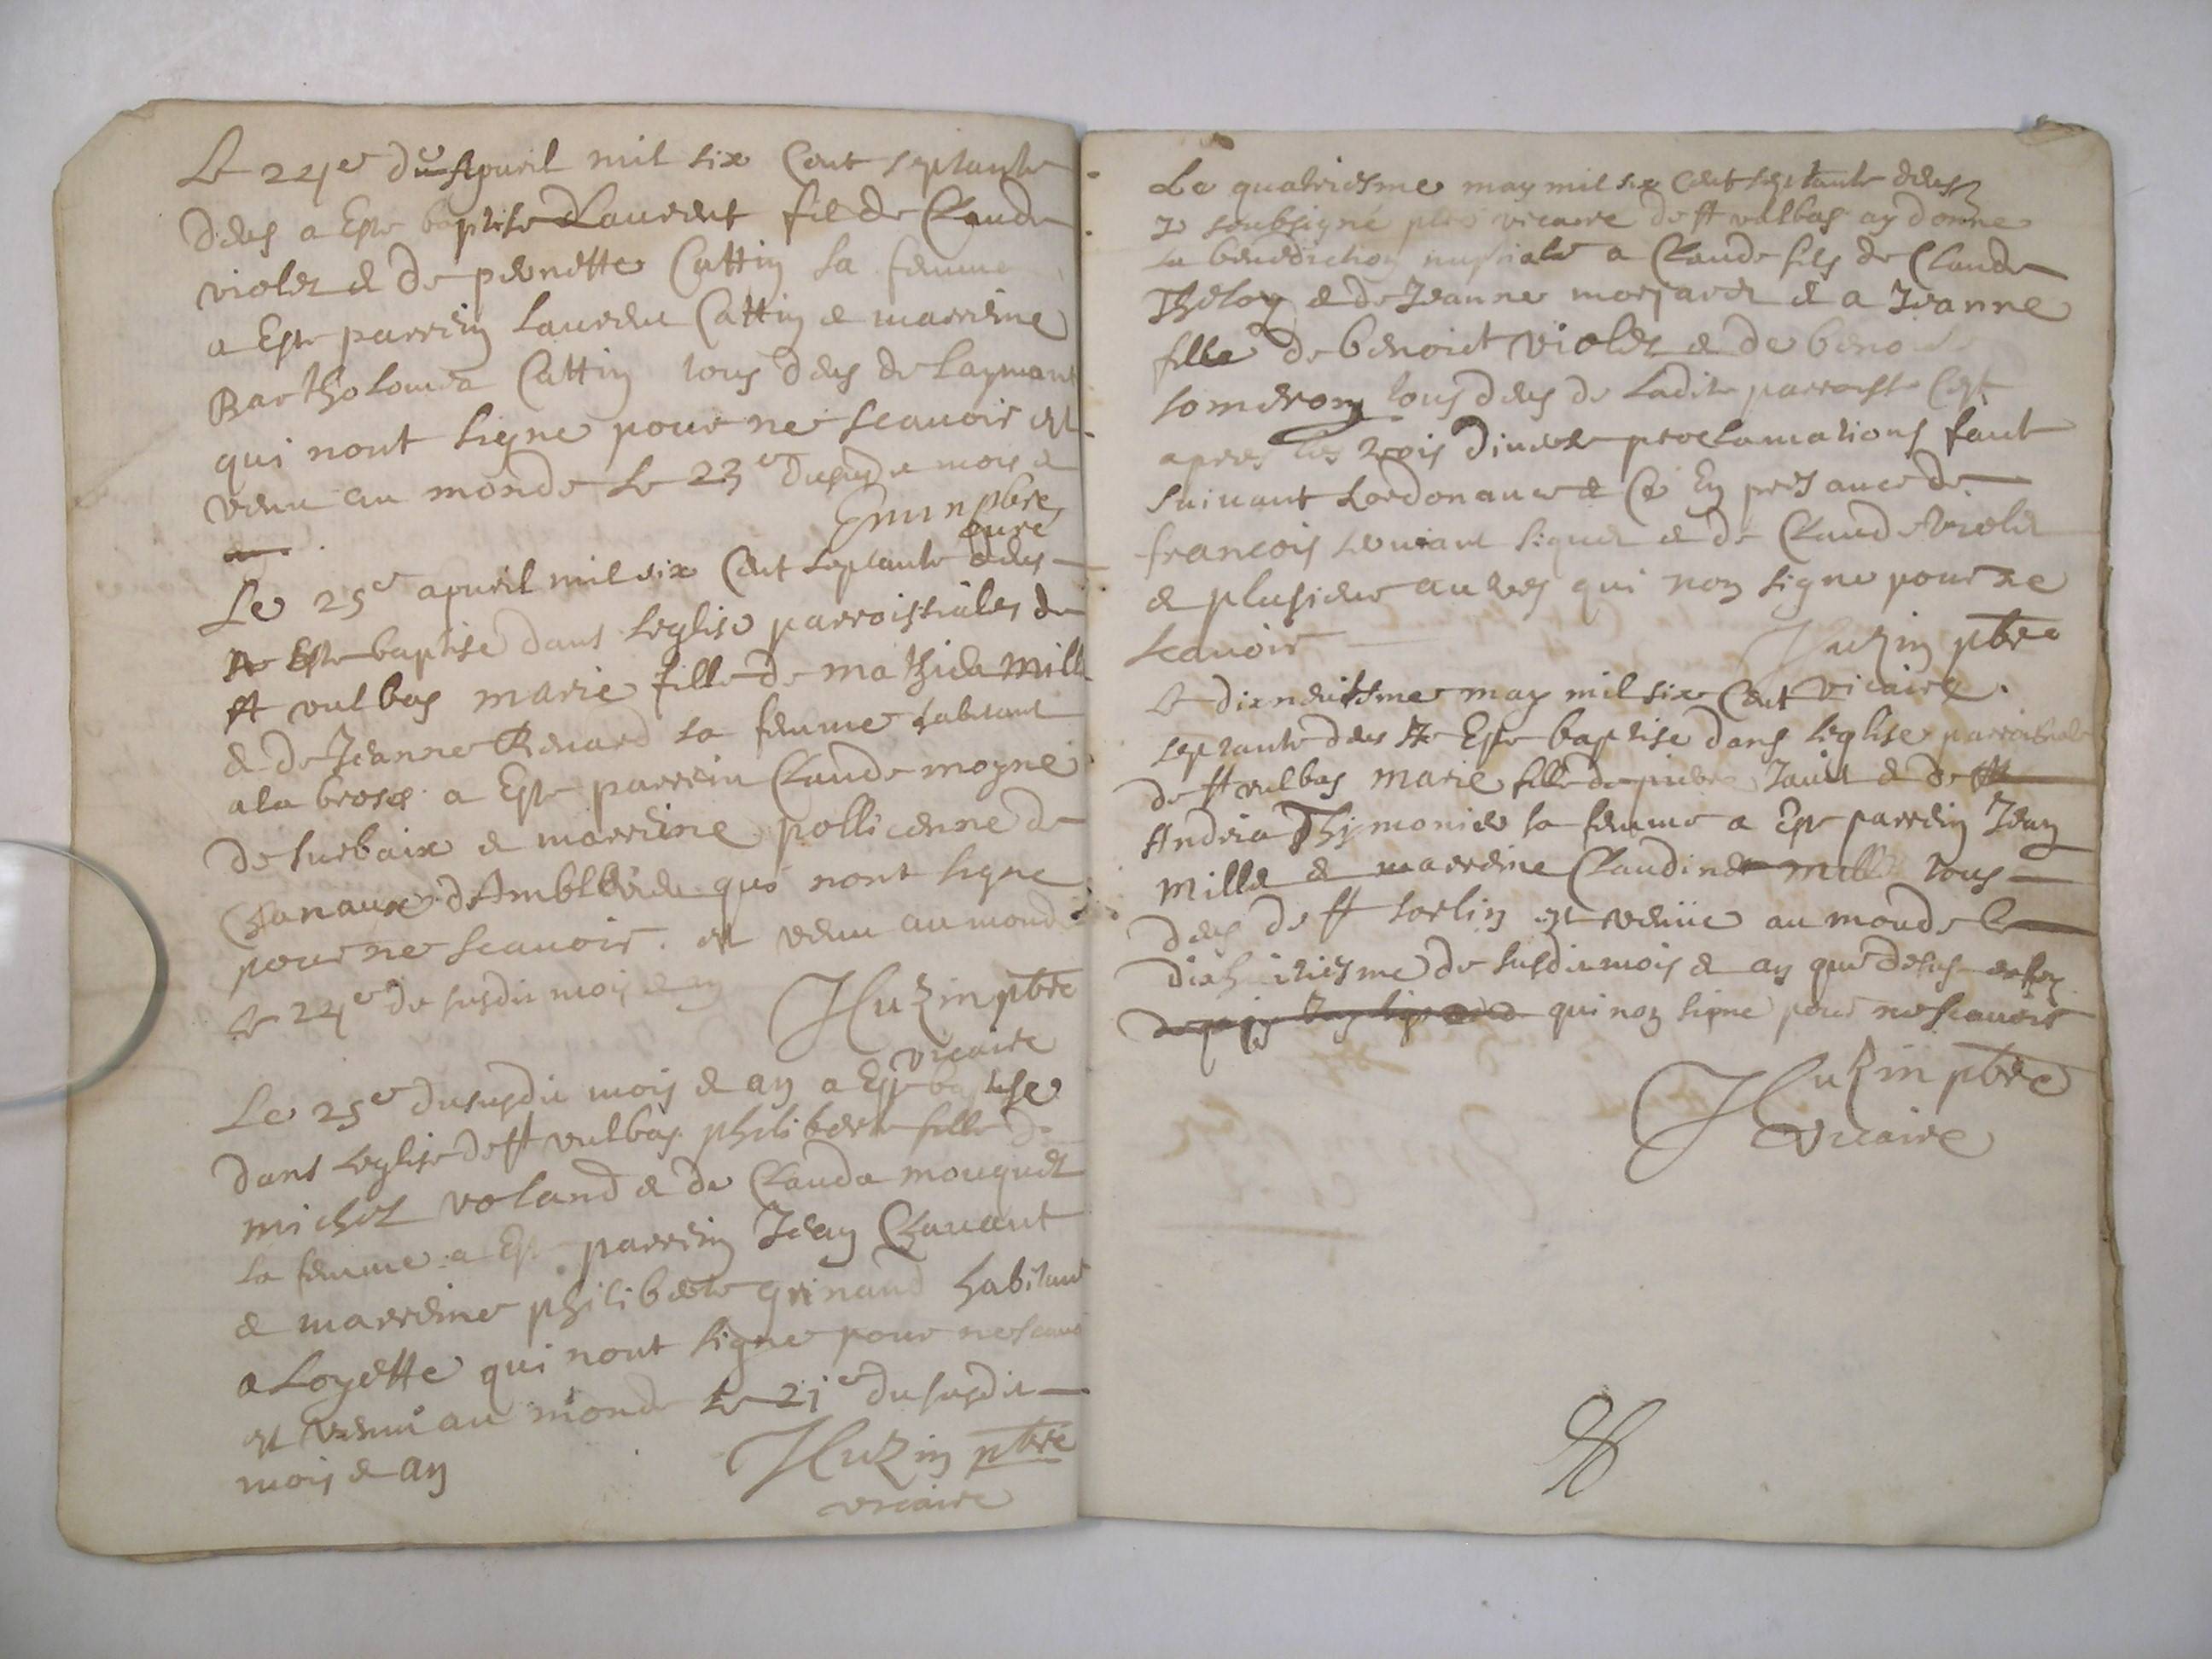 Le 24e du Apuril mil six Cent septante
deus a Este baptise Laurent fil de Claude
violet & de pernette Cattin sa femme
a Este parrein Lauren Cattin & marreine
Bartholomea Cattin tous deus de Laymant
qui nont signe pour ne scauoir est
venu au monde le 23e dususdit mois &
pbre
curé
Le 25e apuril mil six Cent septante deus
A Este baptise dans leglise parroissiales de
st vulbas marie fille de mathieu Mille
& de Jeanne Renard sa femme habitant
a la brosse a Este parrein Claude moyne
de surbaix & marreine pollicenne de
Chanaux d'Amblerieu qui nont signe
pour ne scauoir. est venu au monde
le 24e de susdit mois & an
Huzin pbre
vicaire
Le 25e dususdit mois & an a Este baptise
dans leglise de st vulbas philiberte fille de
michel voland & de Clauda mouquet
sa femme a Este parrein Jean Chauant
& marreine philiberte grinand habitant
a Loyette qui nont signe pour ne scauo
est venu au monde le 21e du susdit
mois & an
Huzin pbre
vicaire
Le quatriesme may mil six Cent septante deus
Je soubsigné pbre vicaire de st vulbas ay donne
la benediction nuptiale a Claude fils de Claude
Theloy & de Jeanne & a Jeanne
fille de benoict violet & de
someron tous deus de Ladite parroisse Cest
apres les trois diuerse proclamations faut
suivant Lordonance & Ce En presance de
francois & de Claude violet
& plusieur autres qui non signe pour ne
scauoir
Huzin pbre
vicaire.
Le dixneuisme may mil six Cent
septante deus A Este baptise dans leglise parroissiale
de st vulbas Marie fille de pierre Jault & de
Andrea Thymonier sa femme a Este parrein Jean
Mille & marreine Claudine Mille tous
deus de st sorlin est venüe au monde le
dixhuitiesme de susdit mois & an que desus
qui non signe pour ne scauoir
Huzin pbre
vicaire